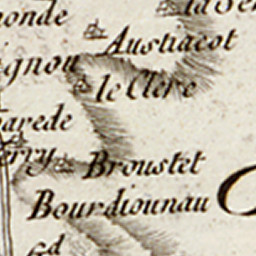 onde
la Se
Austiacot
ignou
le Clere
arede
erry
Broustet
Bourdiounau
Gd